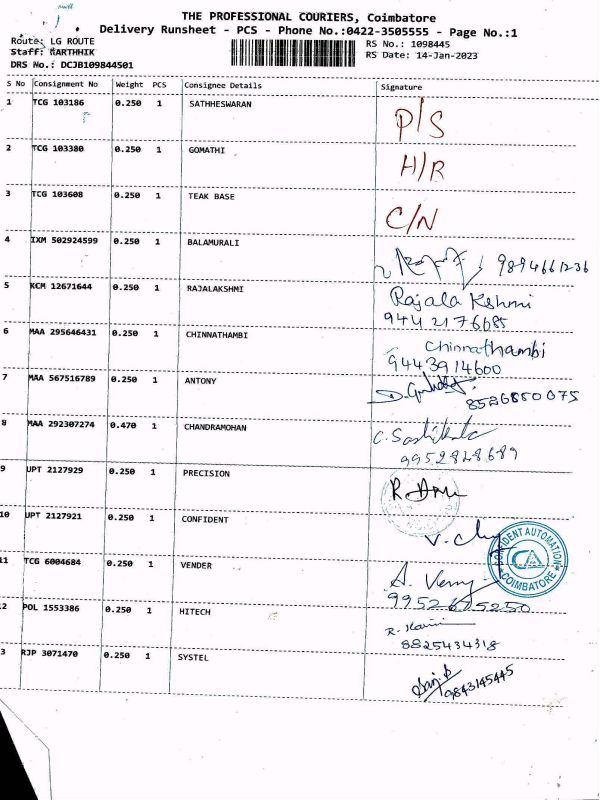 THE PROFESSIONAL COURIERS, Coimbatore
Delivery Runsheet - PCS - Phone No.:0422-3505555 - Page No.:1
Route: LG ROUTE
Staff: KARTHHIK
DRS No.: DCJB109844501
RS No.: 1098445
RS Date: 14-Jan-2023
S No Consignment No Weight PCS Consignee Details Signature
1 TCG 103186 0.250 1 SATHHESWARAN P/S
2 TCG 103380 0.250 1 GOMATHI H/R
3 TCG 103608 0.250 1 TEAK BASE C/N
4 IXM 502924599 0.250 1 BALAMURALI 9894661236
5 KCM 12671644 0.250 1 RAJALAKSHMI Rajala Kshmi
9442176685
6 MAA 295646431 0.250 1 CHINNATHAMBI Chinnathambi
9443914600
7 MAA 567516789 0.250 1 ANTONY
8526850075
8 MAA 292307274 0.470 1 CHANDRAMOHAN C. Sasikala
9952828689
9 UPT 2127929 0.250 1 PRECISION
10 UPT 2127921 0.250 1 CONFIDENT
CONFIDENT AUTOMATION
CA
COIMBATORE
11 TCG 6004684 0.250 1 VENDER
9952675250
2 POL 1553386 0.250 1 HITECH
8825434318
3 RJP 3071470 0.250 1 SYSTEL
9843145445